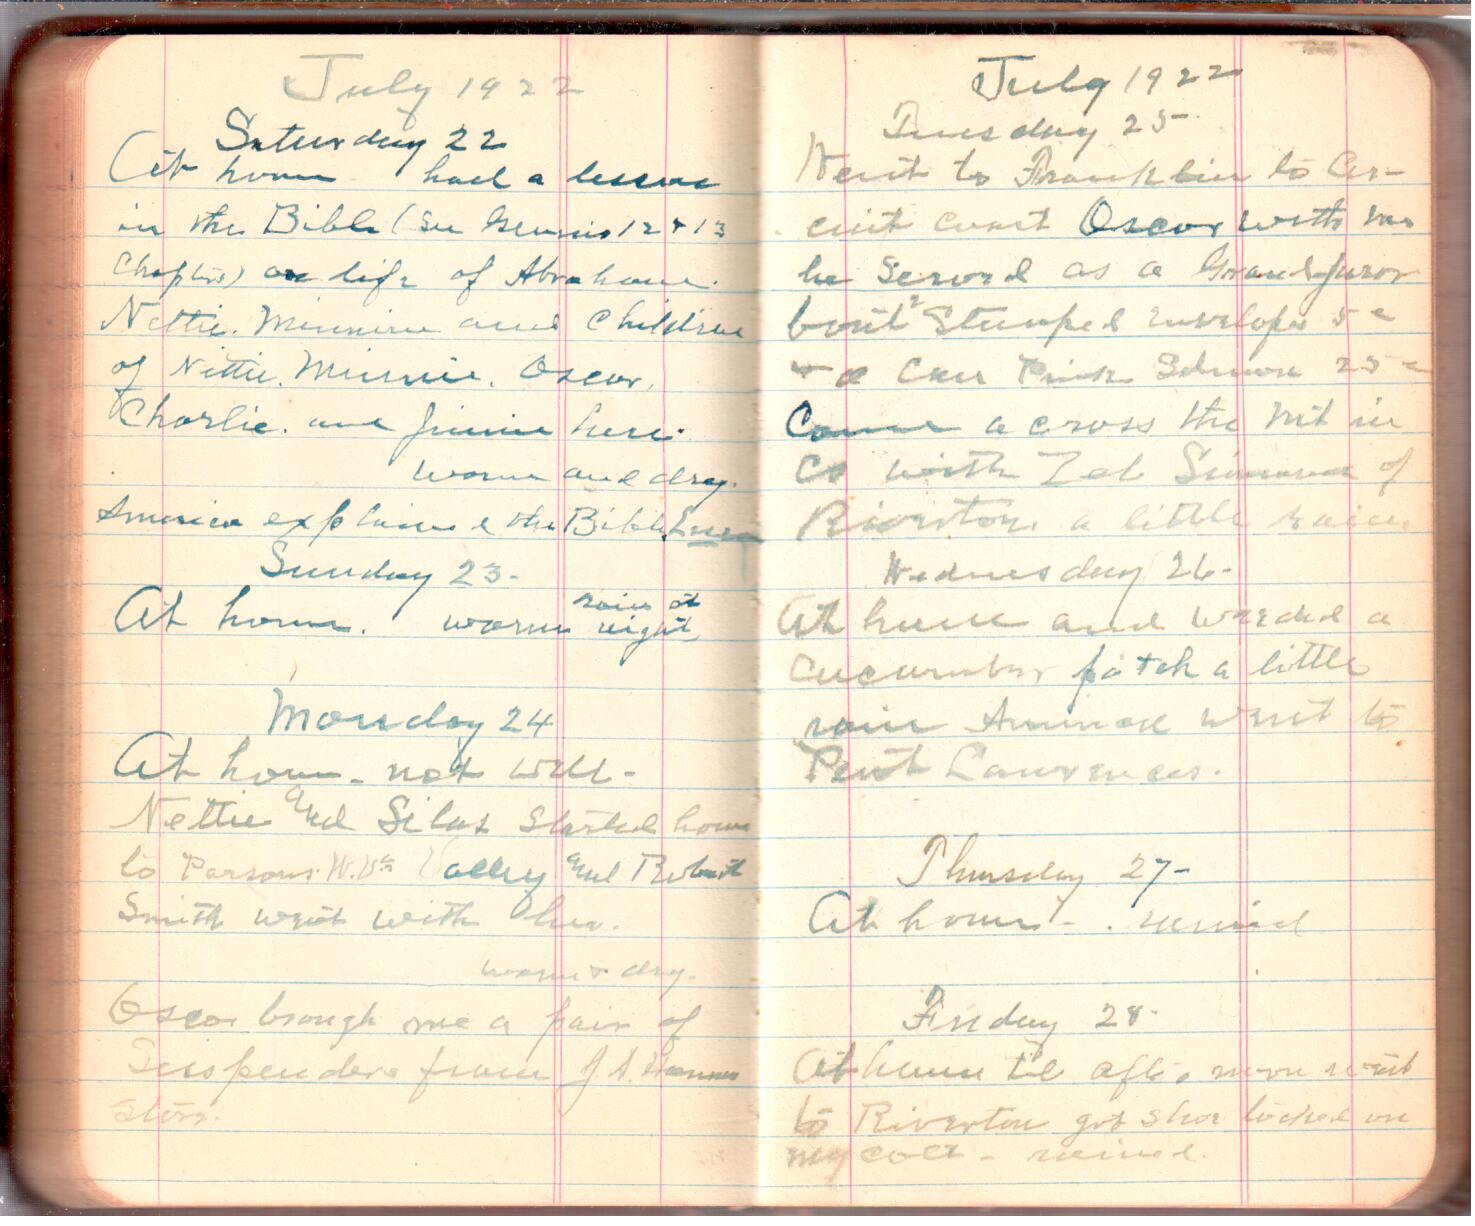 July 1922
Saturday 22
At home had a lesson
in the Bible (see Genesis 12 & 13
Chapters) on life of Abraham.
Nettie. Minnie and Children
of Nettie. Minnie. Oscar.
Charlie. and Jimmie here.
warm and dry.
America explained the Bible
Sunday 23-
At home. warm rain at night
Monday 24
At home - not well -
Nettie and Silas Started home
to Parsons W. Va Valley and Robert
Smith went with her.
warm & dry.
Oscar brough me a pair of
Suspenders from J. A.
store.
July 1922
Tuesday 25-
Went to Franklin to Cir-
cuit Court Oscar with me
he Served as a Grand juror
bout 2 Stamped envelopes 5 c
& a Can Pink Salmon 25 c
Came a cross the Mt in
Co with Zeb Simmons of
Riverton. a little rain.
Wednesday 26-
At home and weeded a
cucumber patch a little
rain went to
Lawrences.
Thursday 27-
At home - . rained
Friday 28-
At home til after noon went
to Riverton got shoe tacked on
my colt - rained.